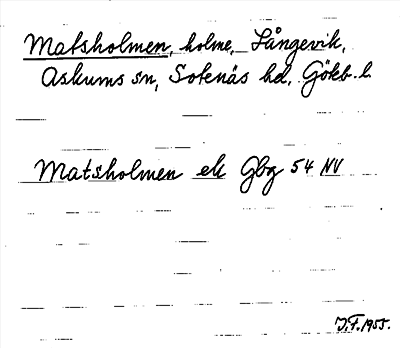 Matsholmen, holme, Långevik,
Askums sn, Sotenäs hd, Göteb. l.
Matsholmen ek Gbg 54 NV
J.F. 1955.